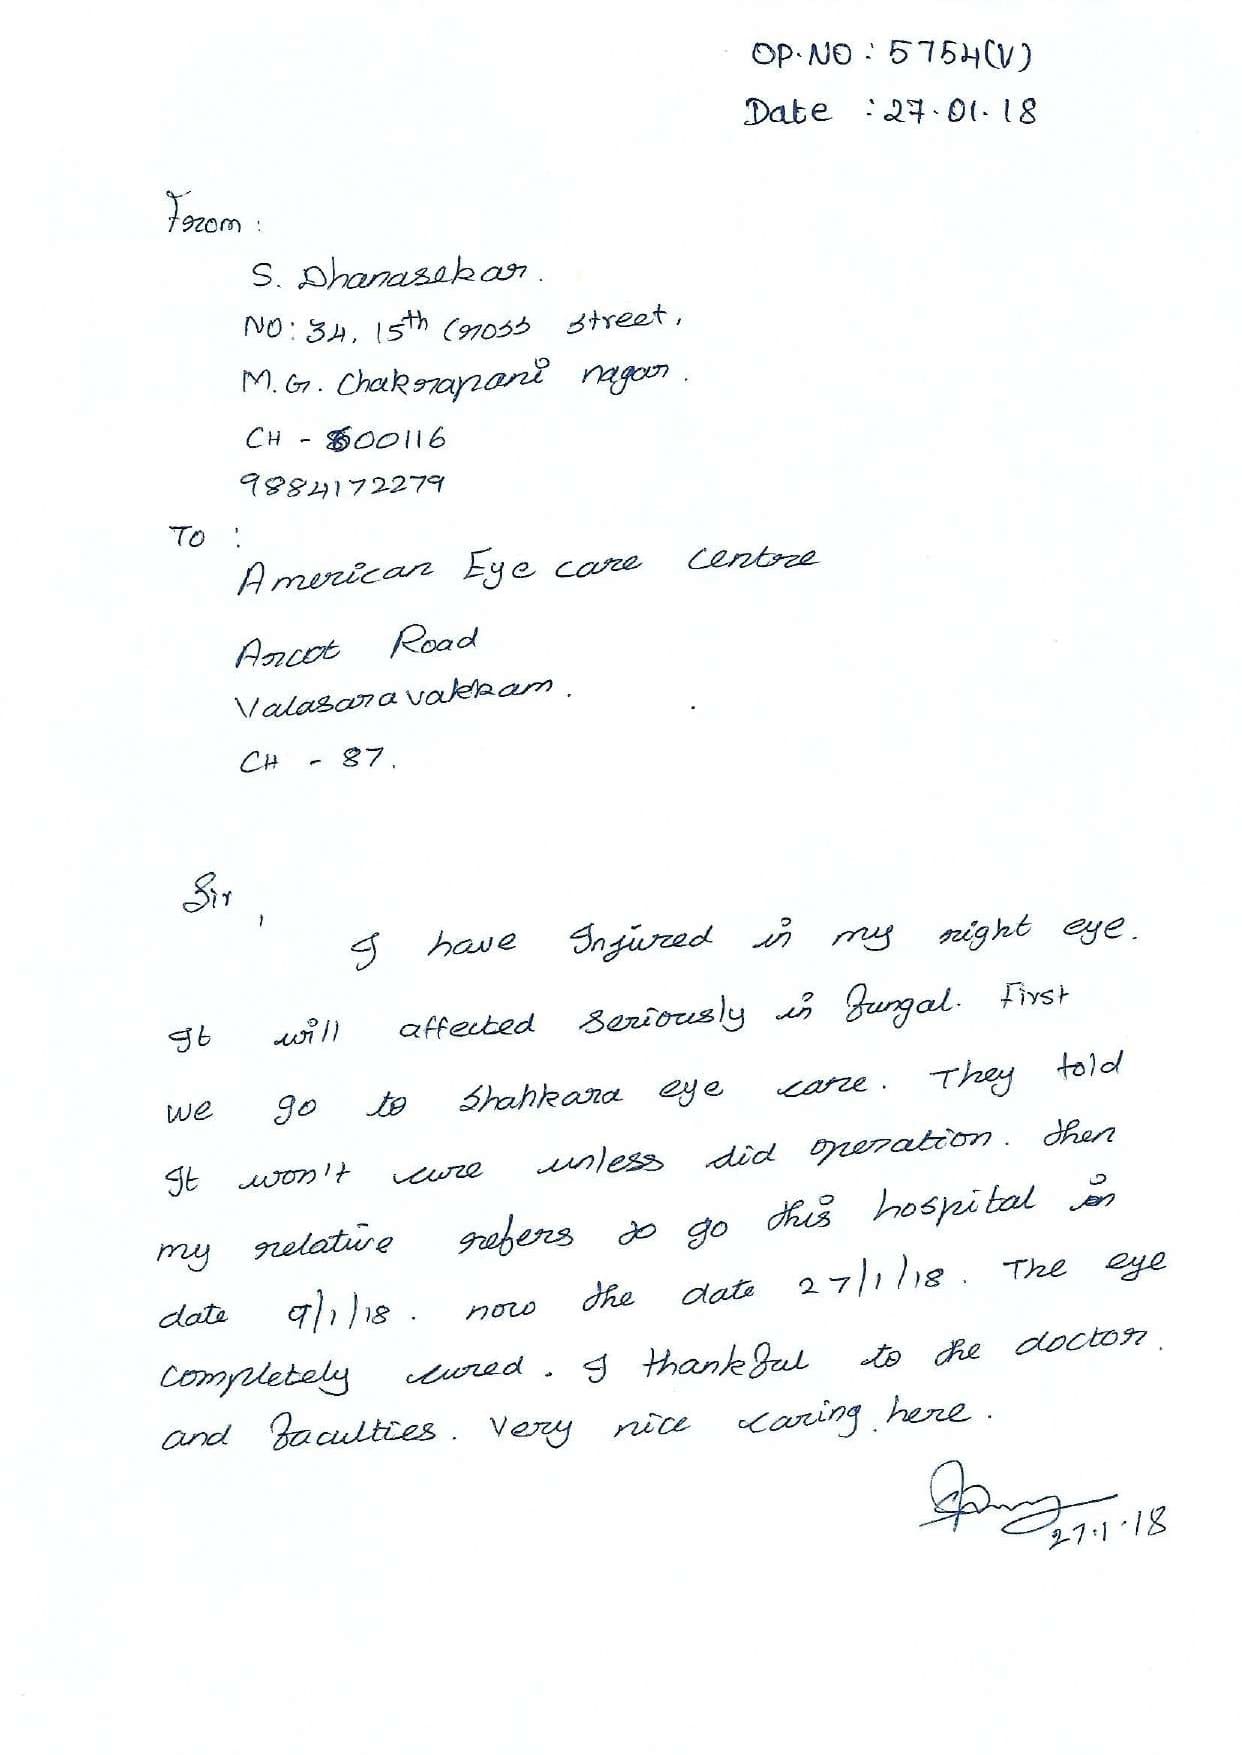 OP.NO : 5754(V)
Date : 27.01.18
From :
S. Dhanasekar.
NO: 34, 15th Cross street,
M.G. Chakrapani nagar.
CH - 600116
9884172279
To :
American Eye care Centre
Arcot Road
Valasaravakkam.
CH - 87.
Sir,
I have Injured in my right eye.
It will affected seriously in fungal. First
we go to Shahkara eye care. They told
It won't cure unless did operation. then
my relative refers to go this hospital in
date 9/1/18. now the date 27/1/18. The eye
completely cured. I thankful to the doctor.
and faculties. Very nice caring here.
27.1.18